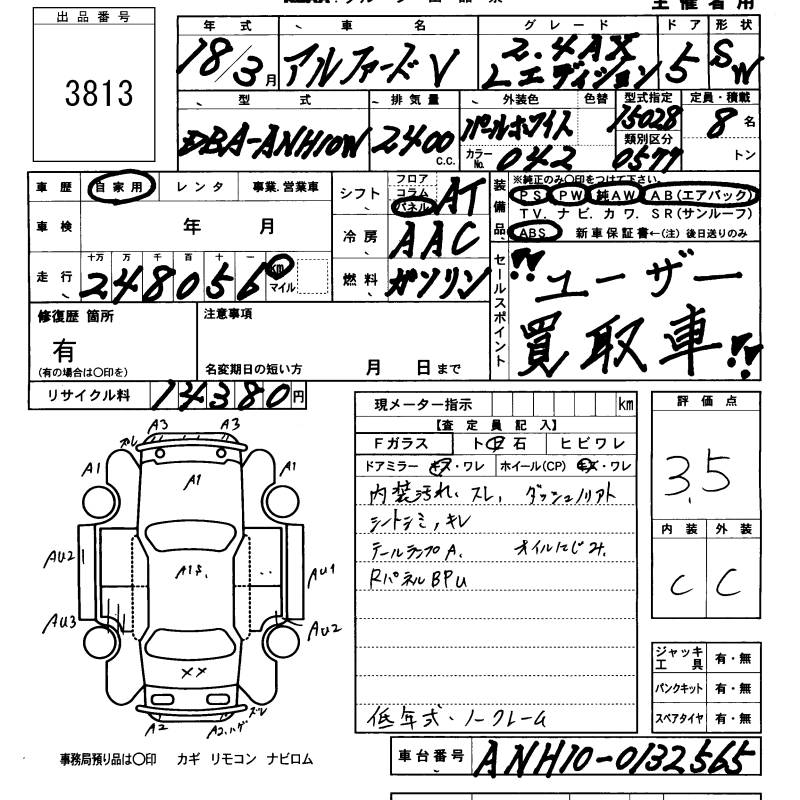 出品番号
3813
年式 車名 グレード ドア 形状
18/3月 アルファードV 2.4AX Lエディション 5 SW
型式 排気量 外装色 色替 型式指定 定員・積載
DBA-ANH10W 2400 C.C. パールホワイト 15028 8名
カラーNo. 042 類別区分 0577 トン
車歴 自家用 レンタ 事業.営業車
シフト フロア コラム パネル AT
車検 年 月
冷房 AAC
走行 十万 万 千 百 十 一
248056 km マイル
燃料 ガソリン
装備品 ※純正のみ○印をつけて下さい。
PS PW 純AW AB(エアバック)
TV. ナビ. カワ. SR(サンルーフ)
ABS 新車保証書←(注)後日送りのみ
セールスポイント
!!ユーザー
買取車!!
修復歴 箇所
有
(有の場合は○印を)
注意事項
名変期日の短い方 月 日まで
リサイクル料 14380円
A3 A3
ズレ
A1 A1 A1
AU2 A1S. AU1
AU3 AU2
XX
A2 A2.ハゲ ズレ
現メーター指示 km
【査定員記入】
Fガラス ト石 ヒビワレ
ドアミラー キズ・ワレ ホイール(CP) キズ・ワレ
内装汚れ、スレ、ダッシュノリアト
シートシミ,キレ
テールランプA. オイルにじみ.
RパネルBPU
低年式・ノークレーム
評価点
3.5
内装 外装
C C
ジャッキ工具 有・無
パンクキット 有・無
スペアタイヤ 有・無
事務局預り品は○印 カギ リモコン ナビロム
車台番号 ANH10-0132565